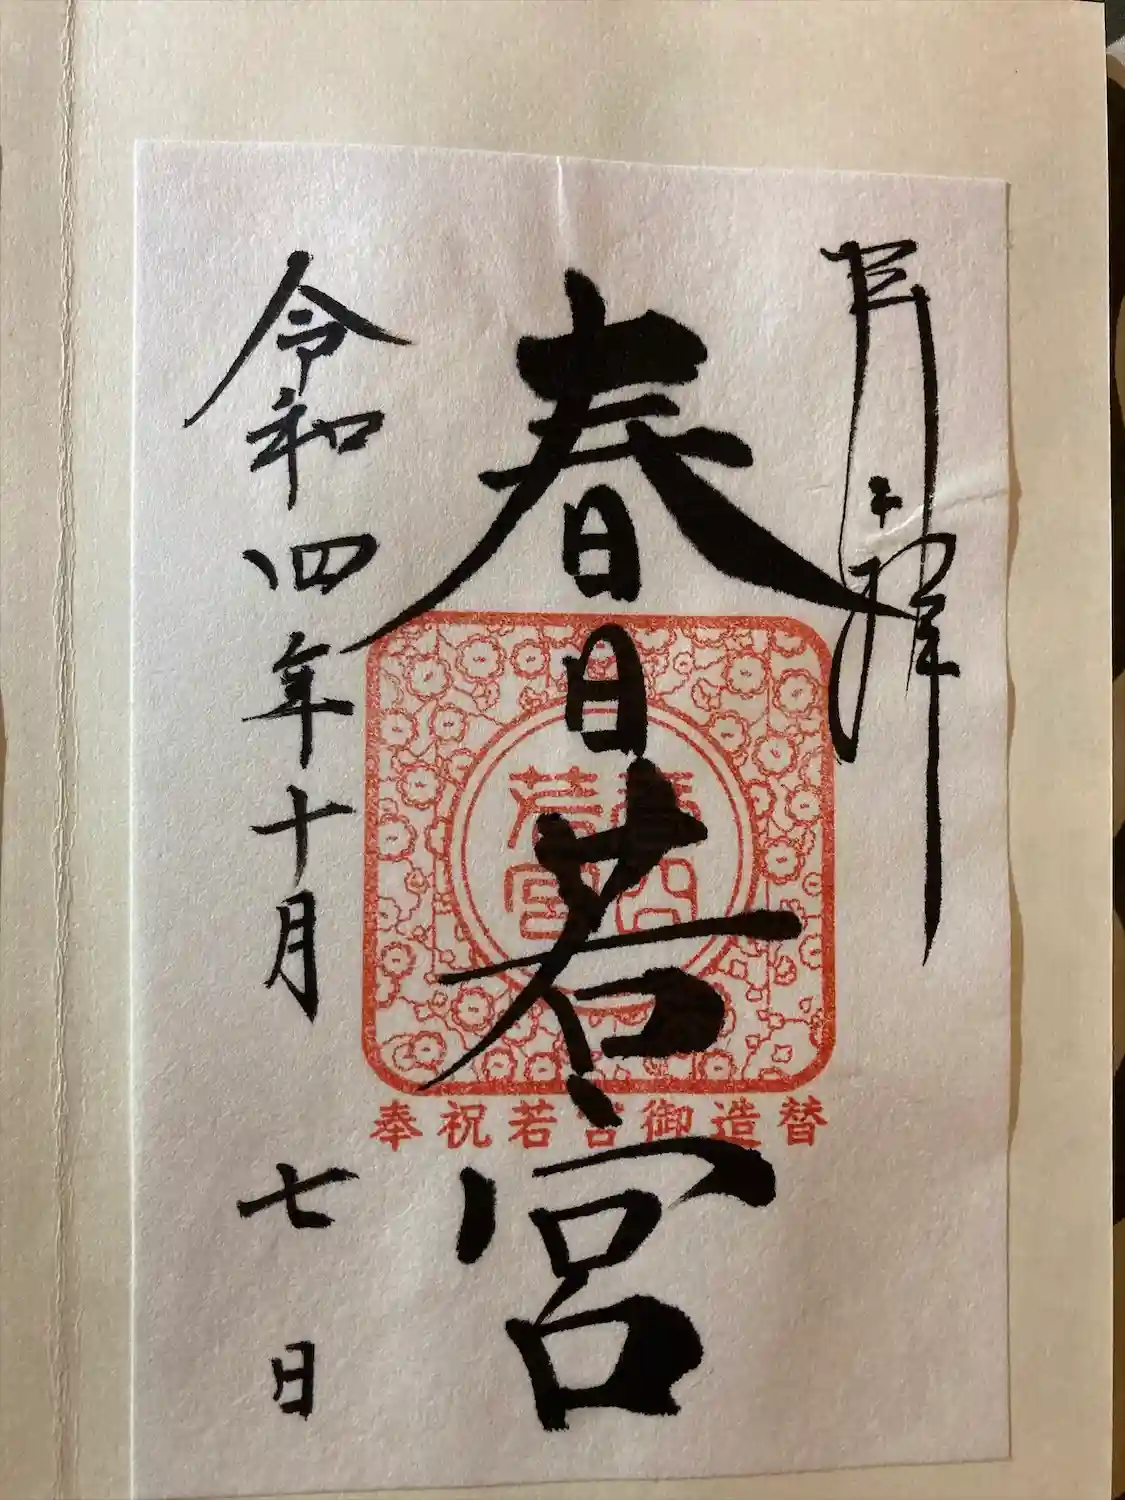 拝
春日若宮
若宮
奉祝若宮御造替
令和四年十月七日